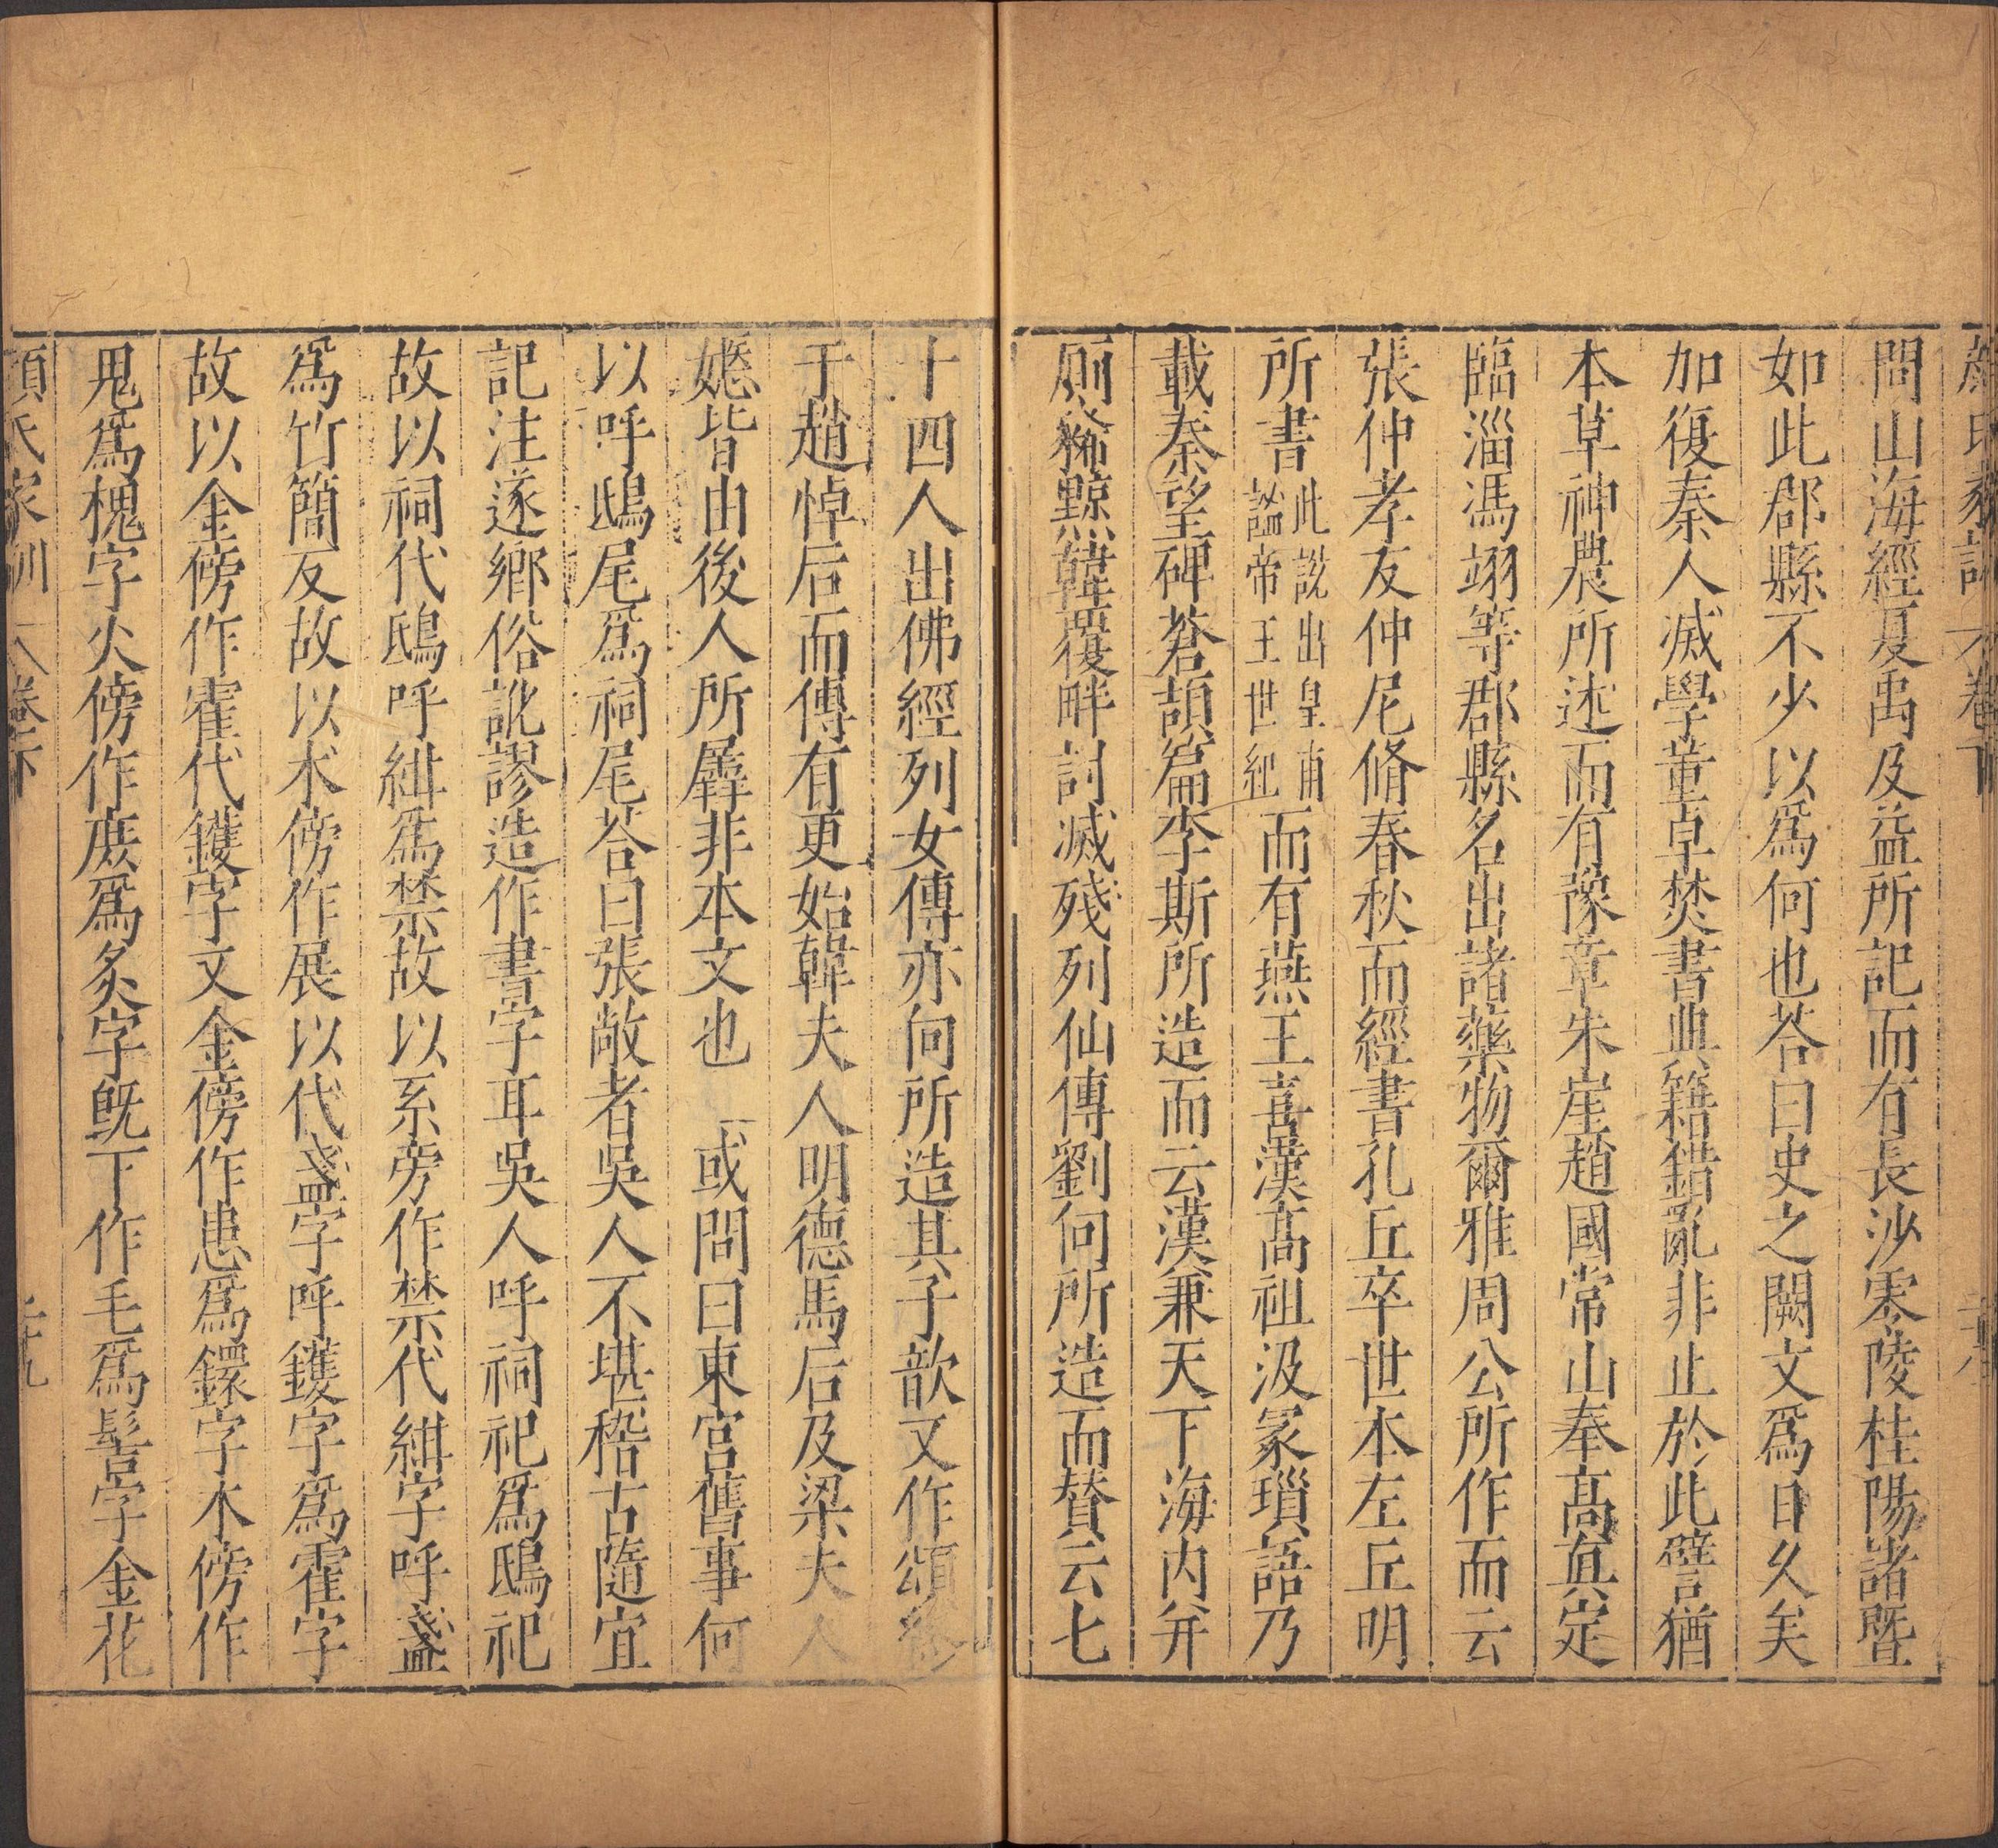 顏氏家訓 卷下
問山海經夏禹及益所記而有長沙零陵桂陽諸暨
如此郡縣不少以爲何也荅曰史之闕文爲日久矣
加復秦人滅學董卓焚書典籍錯亂非止於此譬猶
本草神農所述而有豫章朱崖趙國常山奉高真定
臨淄馮翊等郡縣名出諸藥物爾雅周公所作而云
張仲孝友仲尼脩春秋而經書孔丘卒世本左丘明
所書此說出皇甫謐帝王世紀而有燕王喜漢高祖汲冢瑣語乃
載秦望碑蒼頡篇李斯所造而云漢兼天下海內并
厠豨黥韓覆畔討滅殘列仙傳劉向所造而贊云七
十四人出佛經列女傳亦向所造其子歆又作頌終
于趙悼后而傳有更始韓夫人明德馬后及梁夫人
嫕皆由後人所羼非本文也 或問曰東宮舊事何
以呼鴟尾爲祠尾荅曰張敞者吳人不甚稽古隨宜
記注逐鄉俗訛謬造作書字耳吳人呼祠祀爲鴟祀
故以祠代鴟呼紺爲禁故以糸旁作禁代紺字呼盞
爲竹簡反故以木傍作展以代盞字呼鑊字爲霍字
故以金傍作霍代鑊字又金傍作患爲鐶字木傍作
鬼爲槐字火傍作庶爲炙字旣下作毛爲髻字金花
顏氏家訓 卷下 二十九